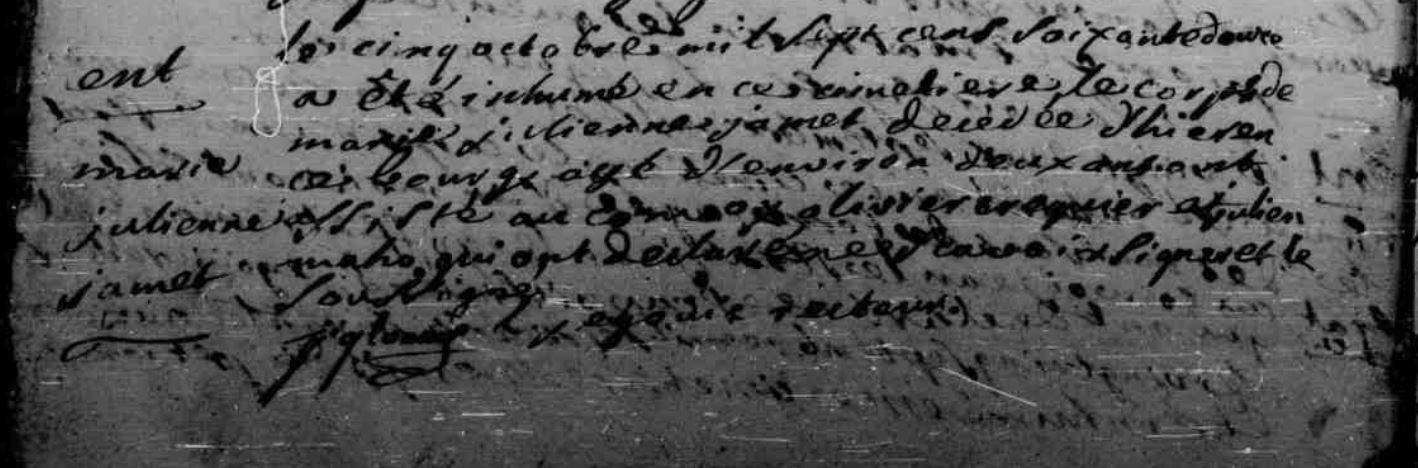 ent
marie
julienne
jamet
le cinq octobre mil sept cent soixante douze
a Eté inhumé en ce cimetiere le corps de
marie julienne jamet decedée d'hier en
ce bourg agé d'environ deux ans ont
assisté au convoy olivier croquier et julien
maho qui ont declaré ne scavoir signer et le
soussigné
recteur